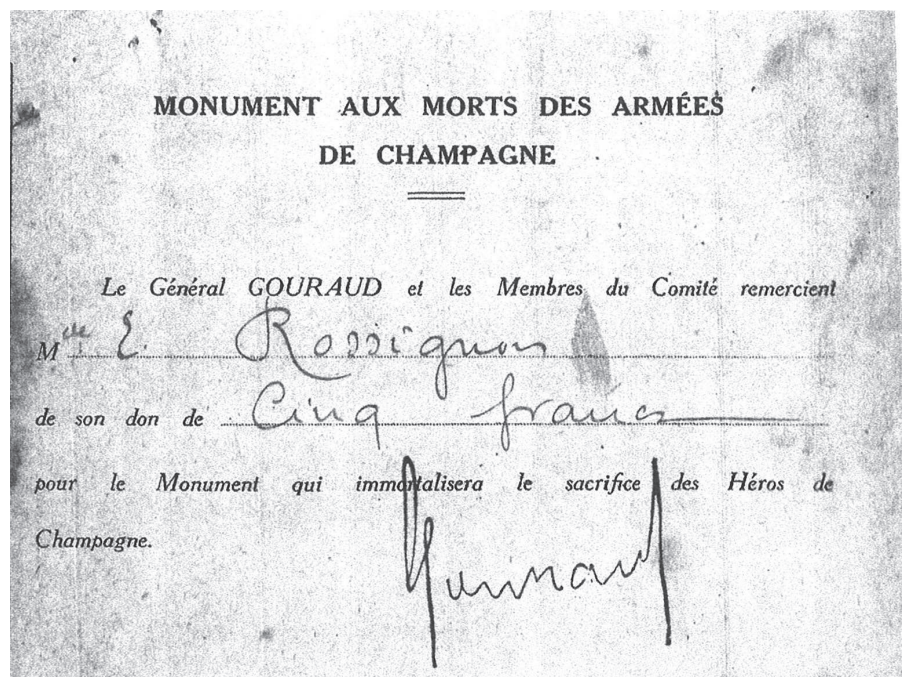 MONUMENT AUX MORTS DES ARMÉES
DE CHAMPAGNE
Le Général GOURAUD et les Membres du Comité remercient
Mlle E. Rossignon
de son don de Cinq francs
pour le Monument qui immortalisera le sacrifice des Héros de
Champagne.
Gouraud